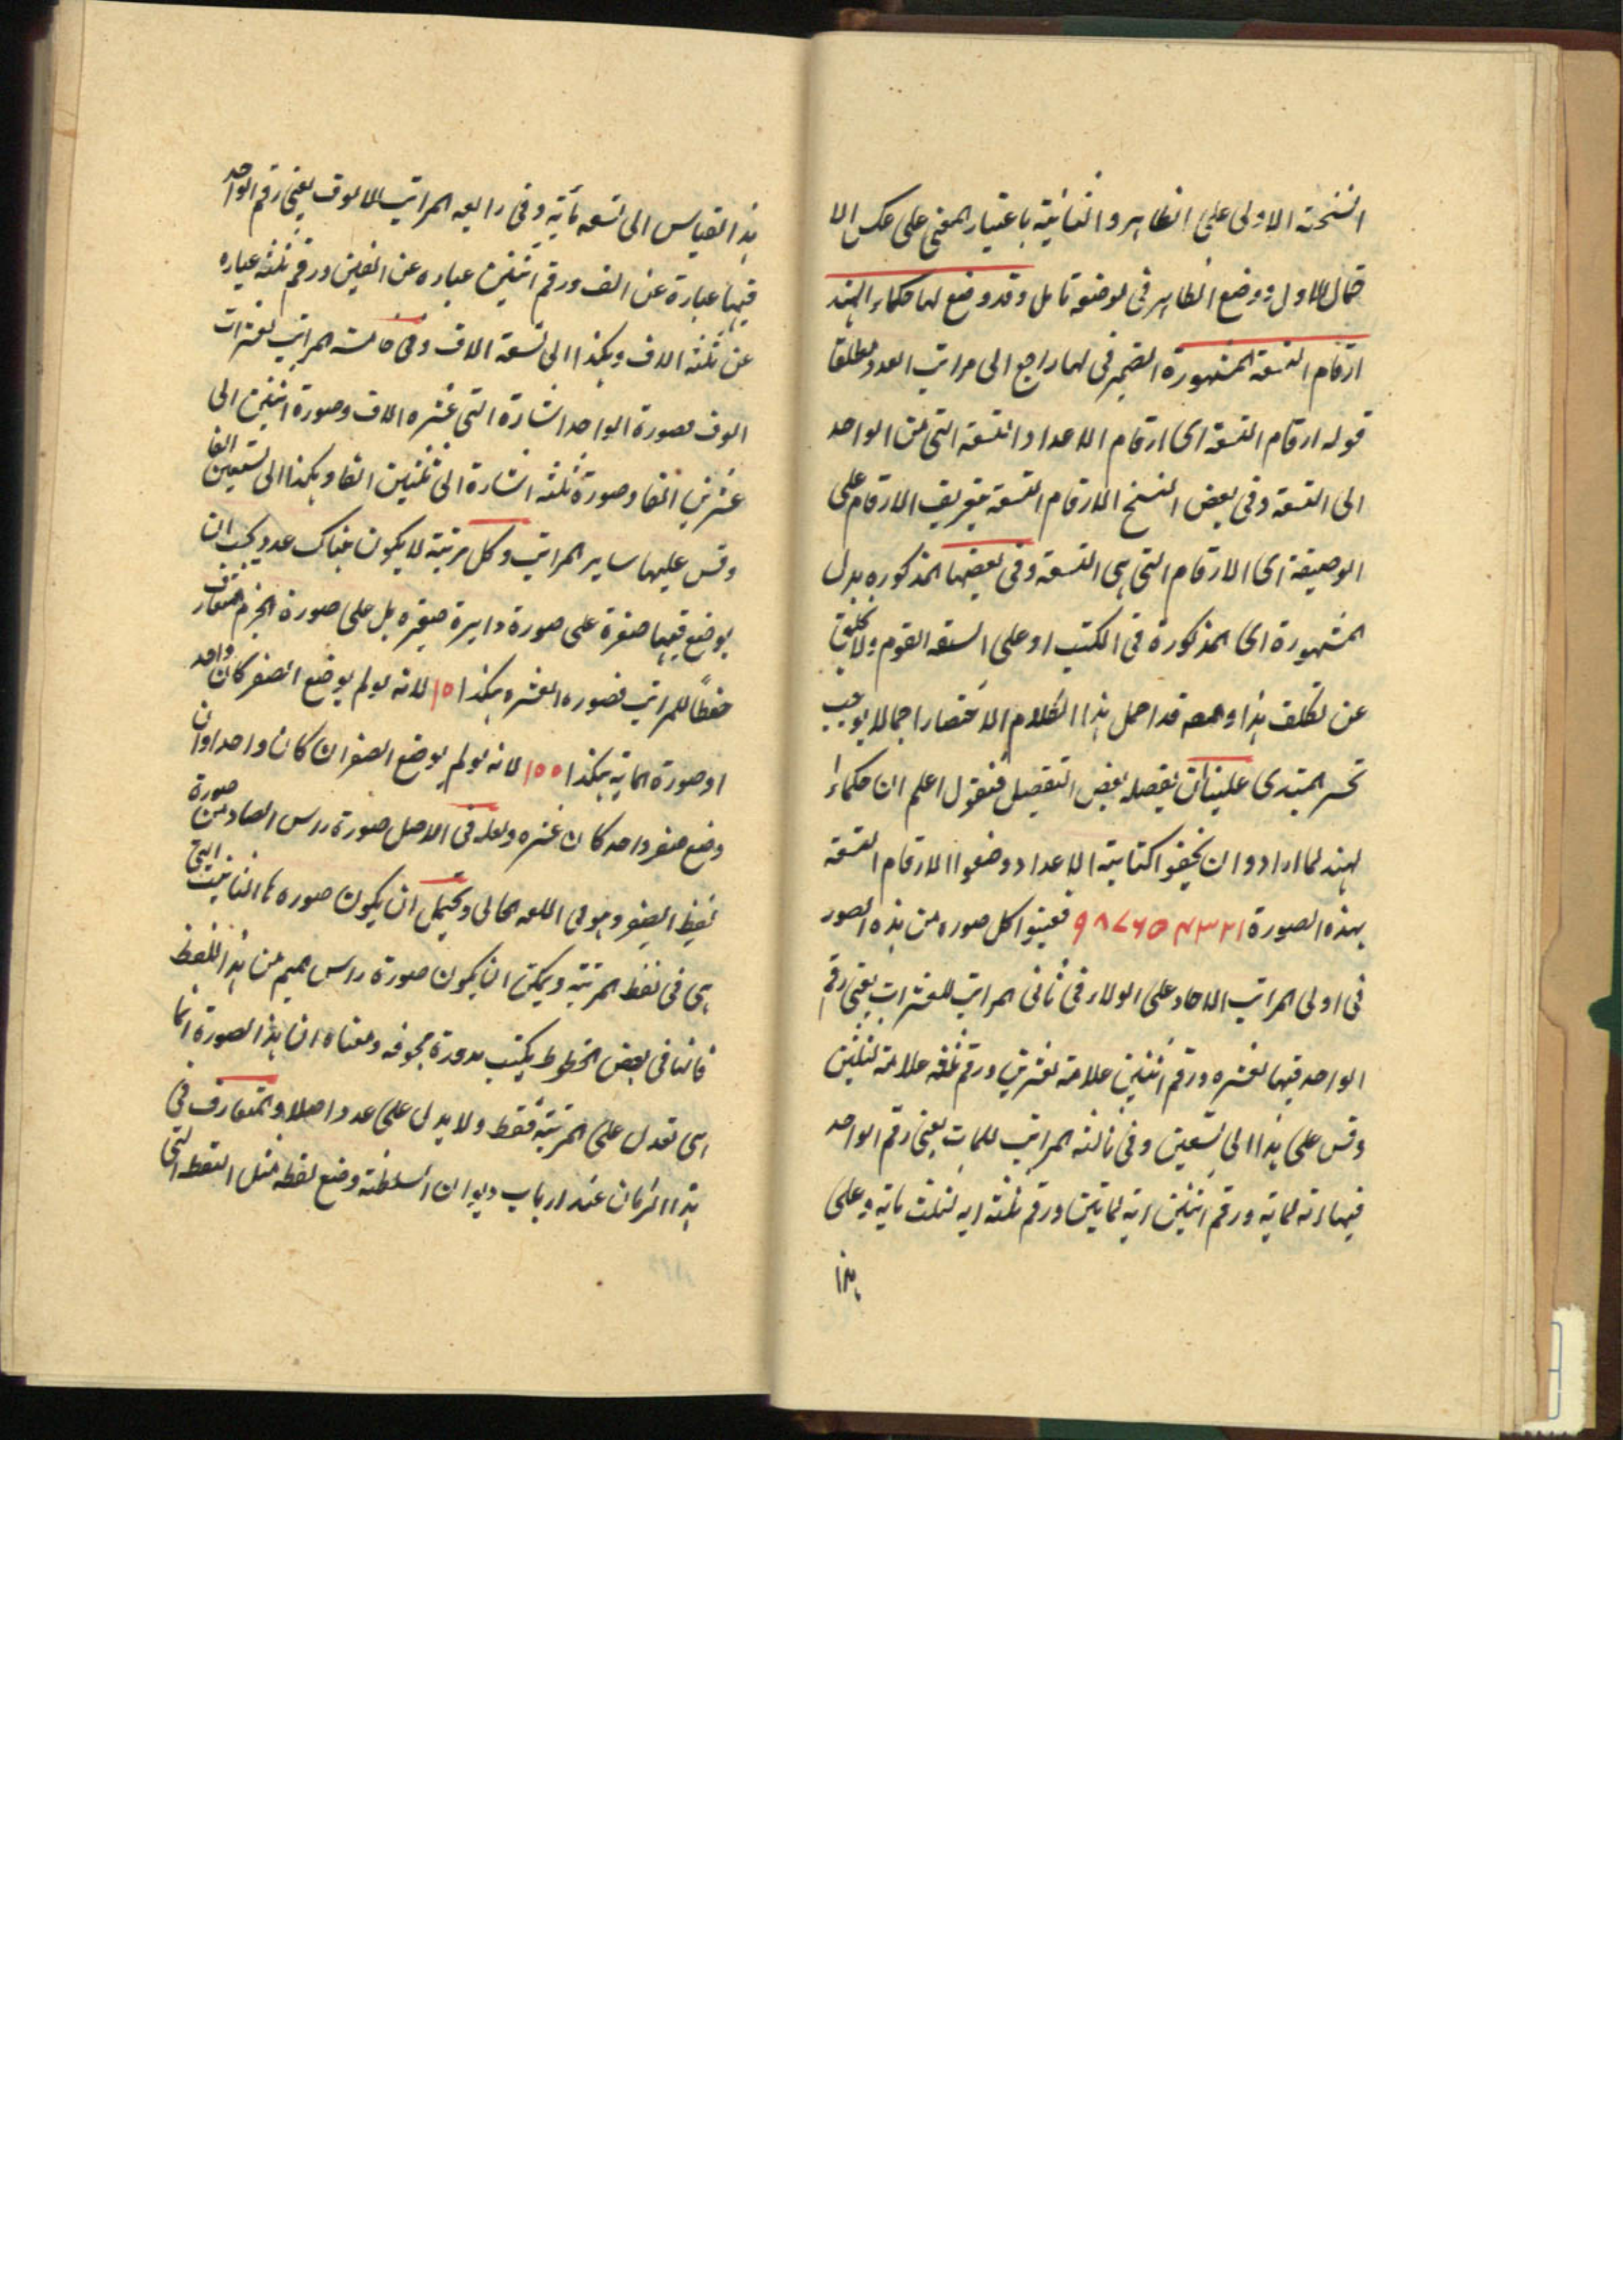 النسخة الاولى على الظاهر والثانية باعتبار المعنى على عكس الا
حتمال الاول ووضع الظاهر فى موضعه تامل وقد وضع لها حكماء الهند
ارقام التسعة المشهورة الضمير فى لها راجع الى مراتب العدد مطلقا
قوله ارقام التسعة اى ارقام الاعداد التسعة التى من الواحد
الى التسعة وفى بعض النسخ الارقام التسعة بتعريف الارقام على
الوصيفة اى الارقام التى هى التسعة وفى بعضها المذكوره بدل
المشهورة اى المذكورة فى الكتب او على السنة القوم ولا يخلو
عن تكلف هذا و قد اجمل هذا الكلام الاختصار اجمالا يوجب
تحير المبتدى علينا ان يفصله بعض التفصيل فنقول اعلم ان حكماء
لهند لما ارادوا ان يخففوا كتابية الاعداد وضعوا الارقام التسعة
بهذه الصورة ١ ٢ ٣ ۴ ٥ ۶ ٧ ٨ ٩ فعينوا كل صوره من هذه الصور
فى اولى المراتب الاحاد على الولاء فى ثانى المراتب للعشرات يعنى رقم
الواحد فيها لعشره ورقم اثنين علامة لعشرين ورقم ثلثه علامة لثلثين
وقس على هذا الى تسعين وفى ثالثه المراتب للمات يعنى رقم الواحد
فيها اية لماية ورقم اثنين اية لمايتين ورقم ثلثه ايه لثلث ماية وعلى
هذا
هذا القياس الى تسعه مأية وفى رابعه المراتب الالوف يعنى رقم الواحد
فيها عبارة عن الف ورقم اثنين عباره عن الفين ورقم ثلثه عباره
عن ثلثه الاف وهكذا الى تسعة الاف وفى خامسة المراتب لعشرات
الوف فصورة الواحد اشارة التى عشره الاف وصورة اثنين الى
عشرين الفا وصورة ثلثه اشارة الى ثلثين الفا وهكذا الى تسعين الفا
وقس عليها ساير المراتب وكل مرتبة لا يكون هناك عدد يجب ان
يوضع فيها صفرة على صورة دايرة صغيره بل على صورة الجزم المتعارف
حفظا للمراتب فصوره العشره هكذا ١٥ لانه لو لم يوضع الصفر كان واحد
او صورة الماية هكذا ١٥٥ لانه لو لم يوضع الصفران كان واحدا وان
وضع صفر واحد كان عشره ولعله فى الاصل صورة راس الصاد من صورة
لفظ الصفر وهو فى اللغه الخالى ويحتمل ان يكون صوره ها التانيث التى
هى فى لفظ المرتبة ويمكن ان يكون صورة راس ميم من هذا اللفظ
فانها فى بعض الخطوط يكتب مدورة مجوفه ومعناه ان هذا الصورة انما
هى تعدل على المرتبة فقط ولا يدل على عدد اصلا والمتعارف فى
هذا الزمان عند ارباب ديوان السلطنة وضع لفظه مثل النقط التى